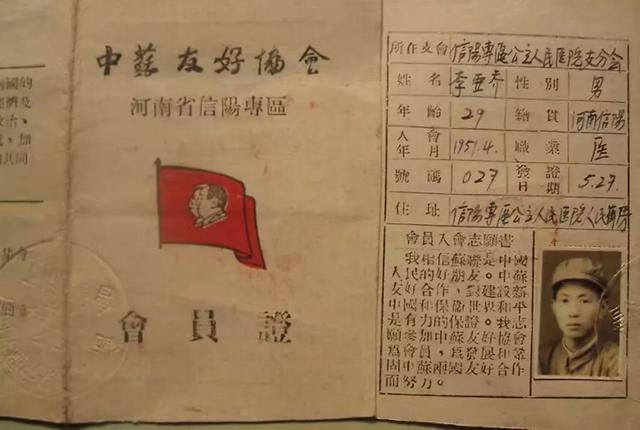 國的
濟及
政治、
，加
共同
中蘇友好協會
河南省信陽專區
會員證
所在支會 信陽專區公立人民医院支分会
姓名 李亞 性別 男
年齡 29 籍貫 河南信陽
入會年月 1951.4. 職業 医
號碼 027 發證日期 5.27.
住址 信陽專區公立人民医院人民
會員入會志願書
我相信蘇聯是中國
人民的好朋友。中蘇
友好合作，對建設新
中國和保衛世界和平
是有力的保證。我志
願參加中蘇友好協會
爲會員，爲發展和鞏
固中蘇兩國友好合作
而努力。